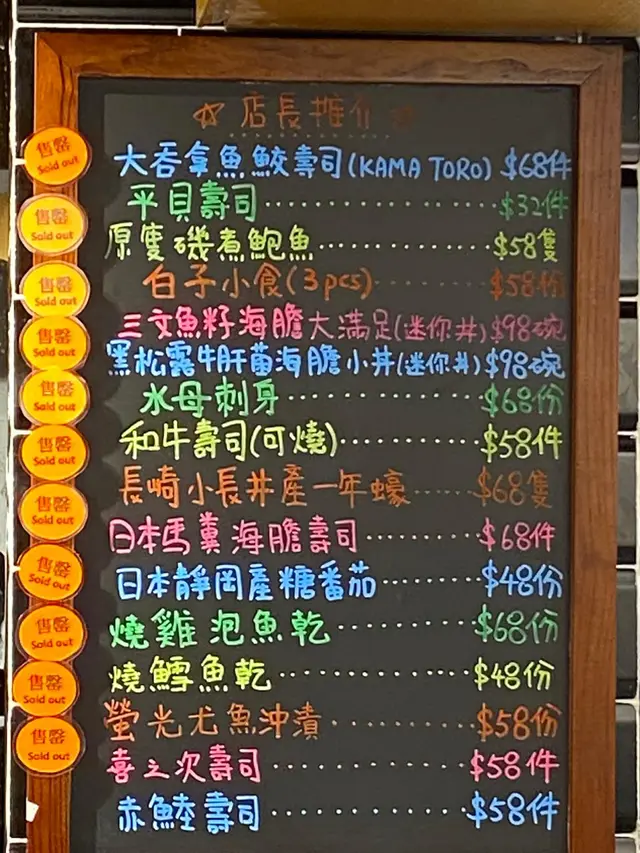 ☆ 店長推介 ☆
售罄 Sold out
大吞拿魚鮫壽司(KAMA TORO) $68件
平貝壽司 $32件
售罄 Sold out
原隻磯煮鮑魚 $58隻
售罄 Sold out
白子小食(3pcs) $58份
售罄 Sold out
三文魚籽海膽大滿足(迷你丼) $98碗
售罄 Sold out
黑松露牛肝菌海膽小丼(迷你丼) $98碗
售罄 Sold out
水母刺身 $68份
售罄 Sold out
和牛壽司(可燒) $58件
長崎小長井產一年蠔 $68隻
售罄 Sold out
日本馬糞海膽壽司 $68件
售罄 Sold out
日本靜岡產糖番茄 $48份
燒雞泡魚乾 $68份
售罄 Sold out
燒鱈魚乾 $48份
售罄 Sold out
螢光尤魚沖漬 $58份
喜之次壽司 $58件
赤鯥壽司 $58件